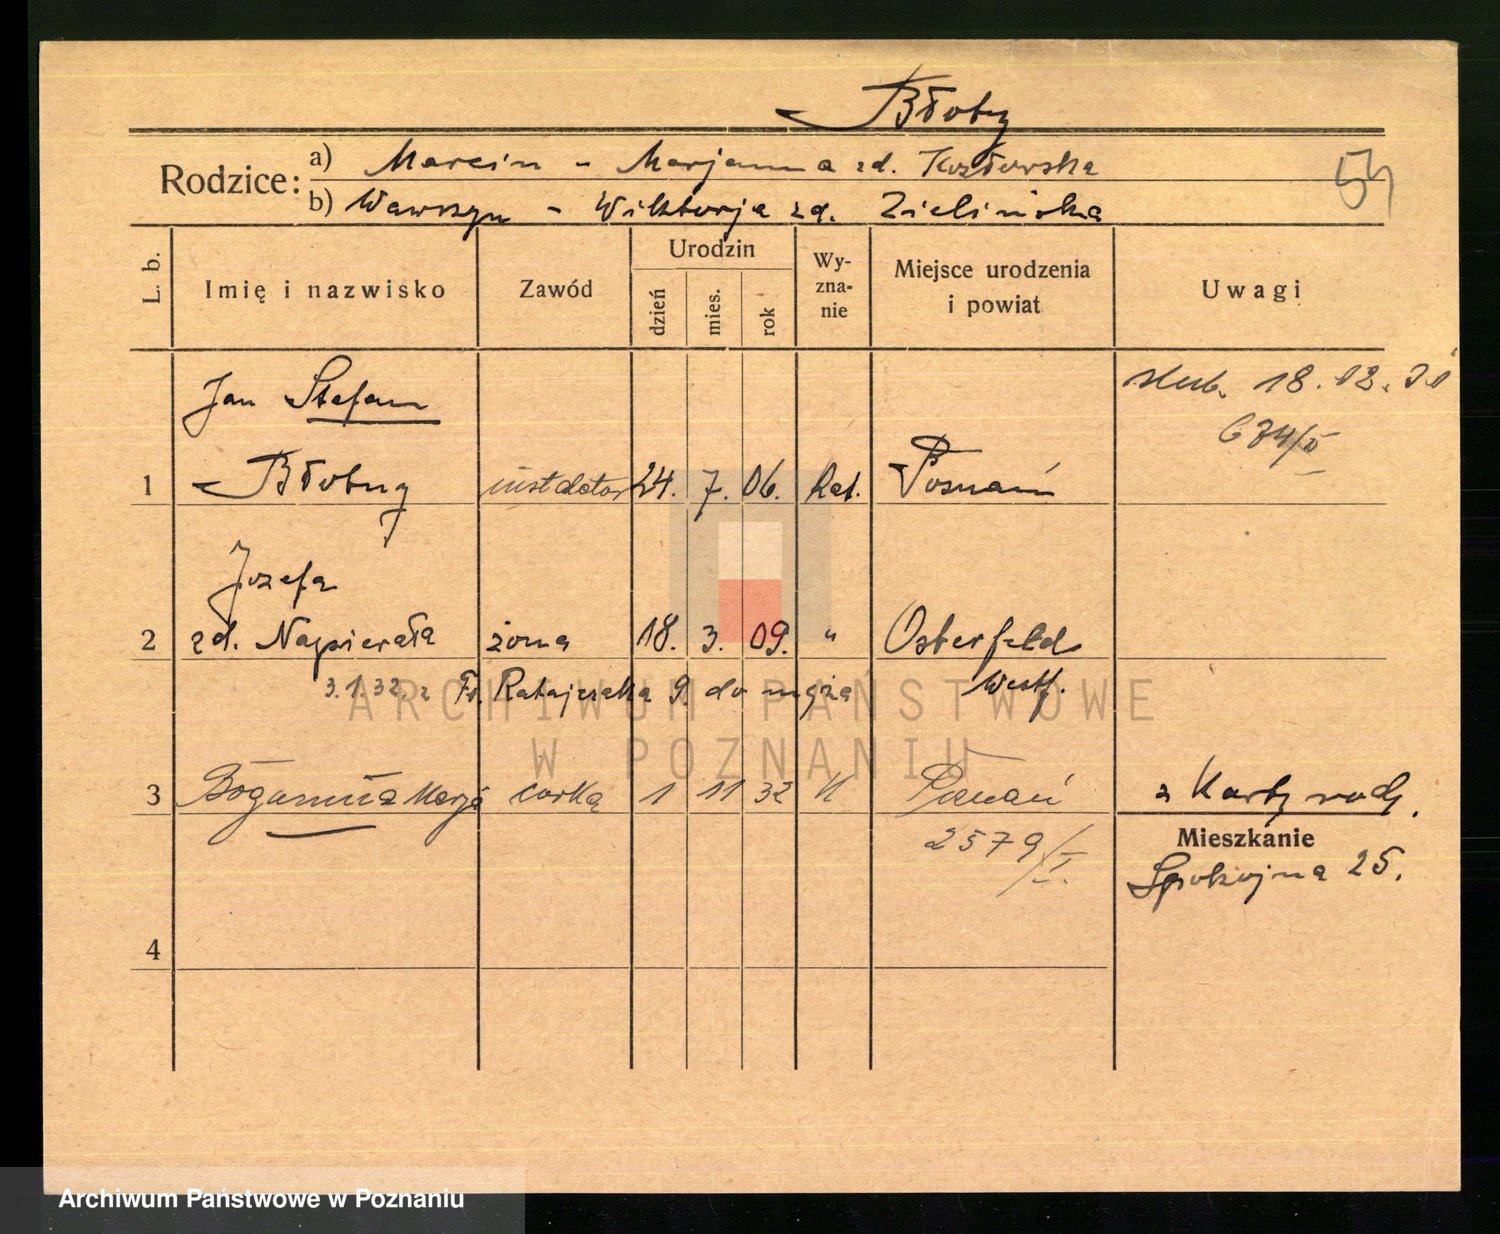 Błoby
Rodzice: a) Marcin - Marjanna zd. Kozłowska
b) Wawrzyn - Wiktorja zd. Zielińska
54
L. b. Imię i nazwisko Zawód Urodzin dzień mies. rok Wy-zna-nie Miejsce urodzenia i powiat Uwagi
Jan Stefan
ślub. 18.12.31
674/II
1 Błobny 24. 7. 06. Kat. Poznań
Józefa
2 zd. Napierała żona 18. 3. 09. " Osterfeld
3.1.32. z Fr. Ratajczaka 9. do męża Westf.
ARCHIWUM PAŃSTWOWE
W POZNANIU
3 Bogumiła Marja córka 1 11 32 K Poznań z Karty rodz.
2579/I.
Mieszkanie
Spokojna 25.
4
Archiwum Państwowe w Poznaniu